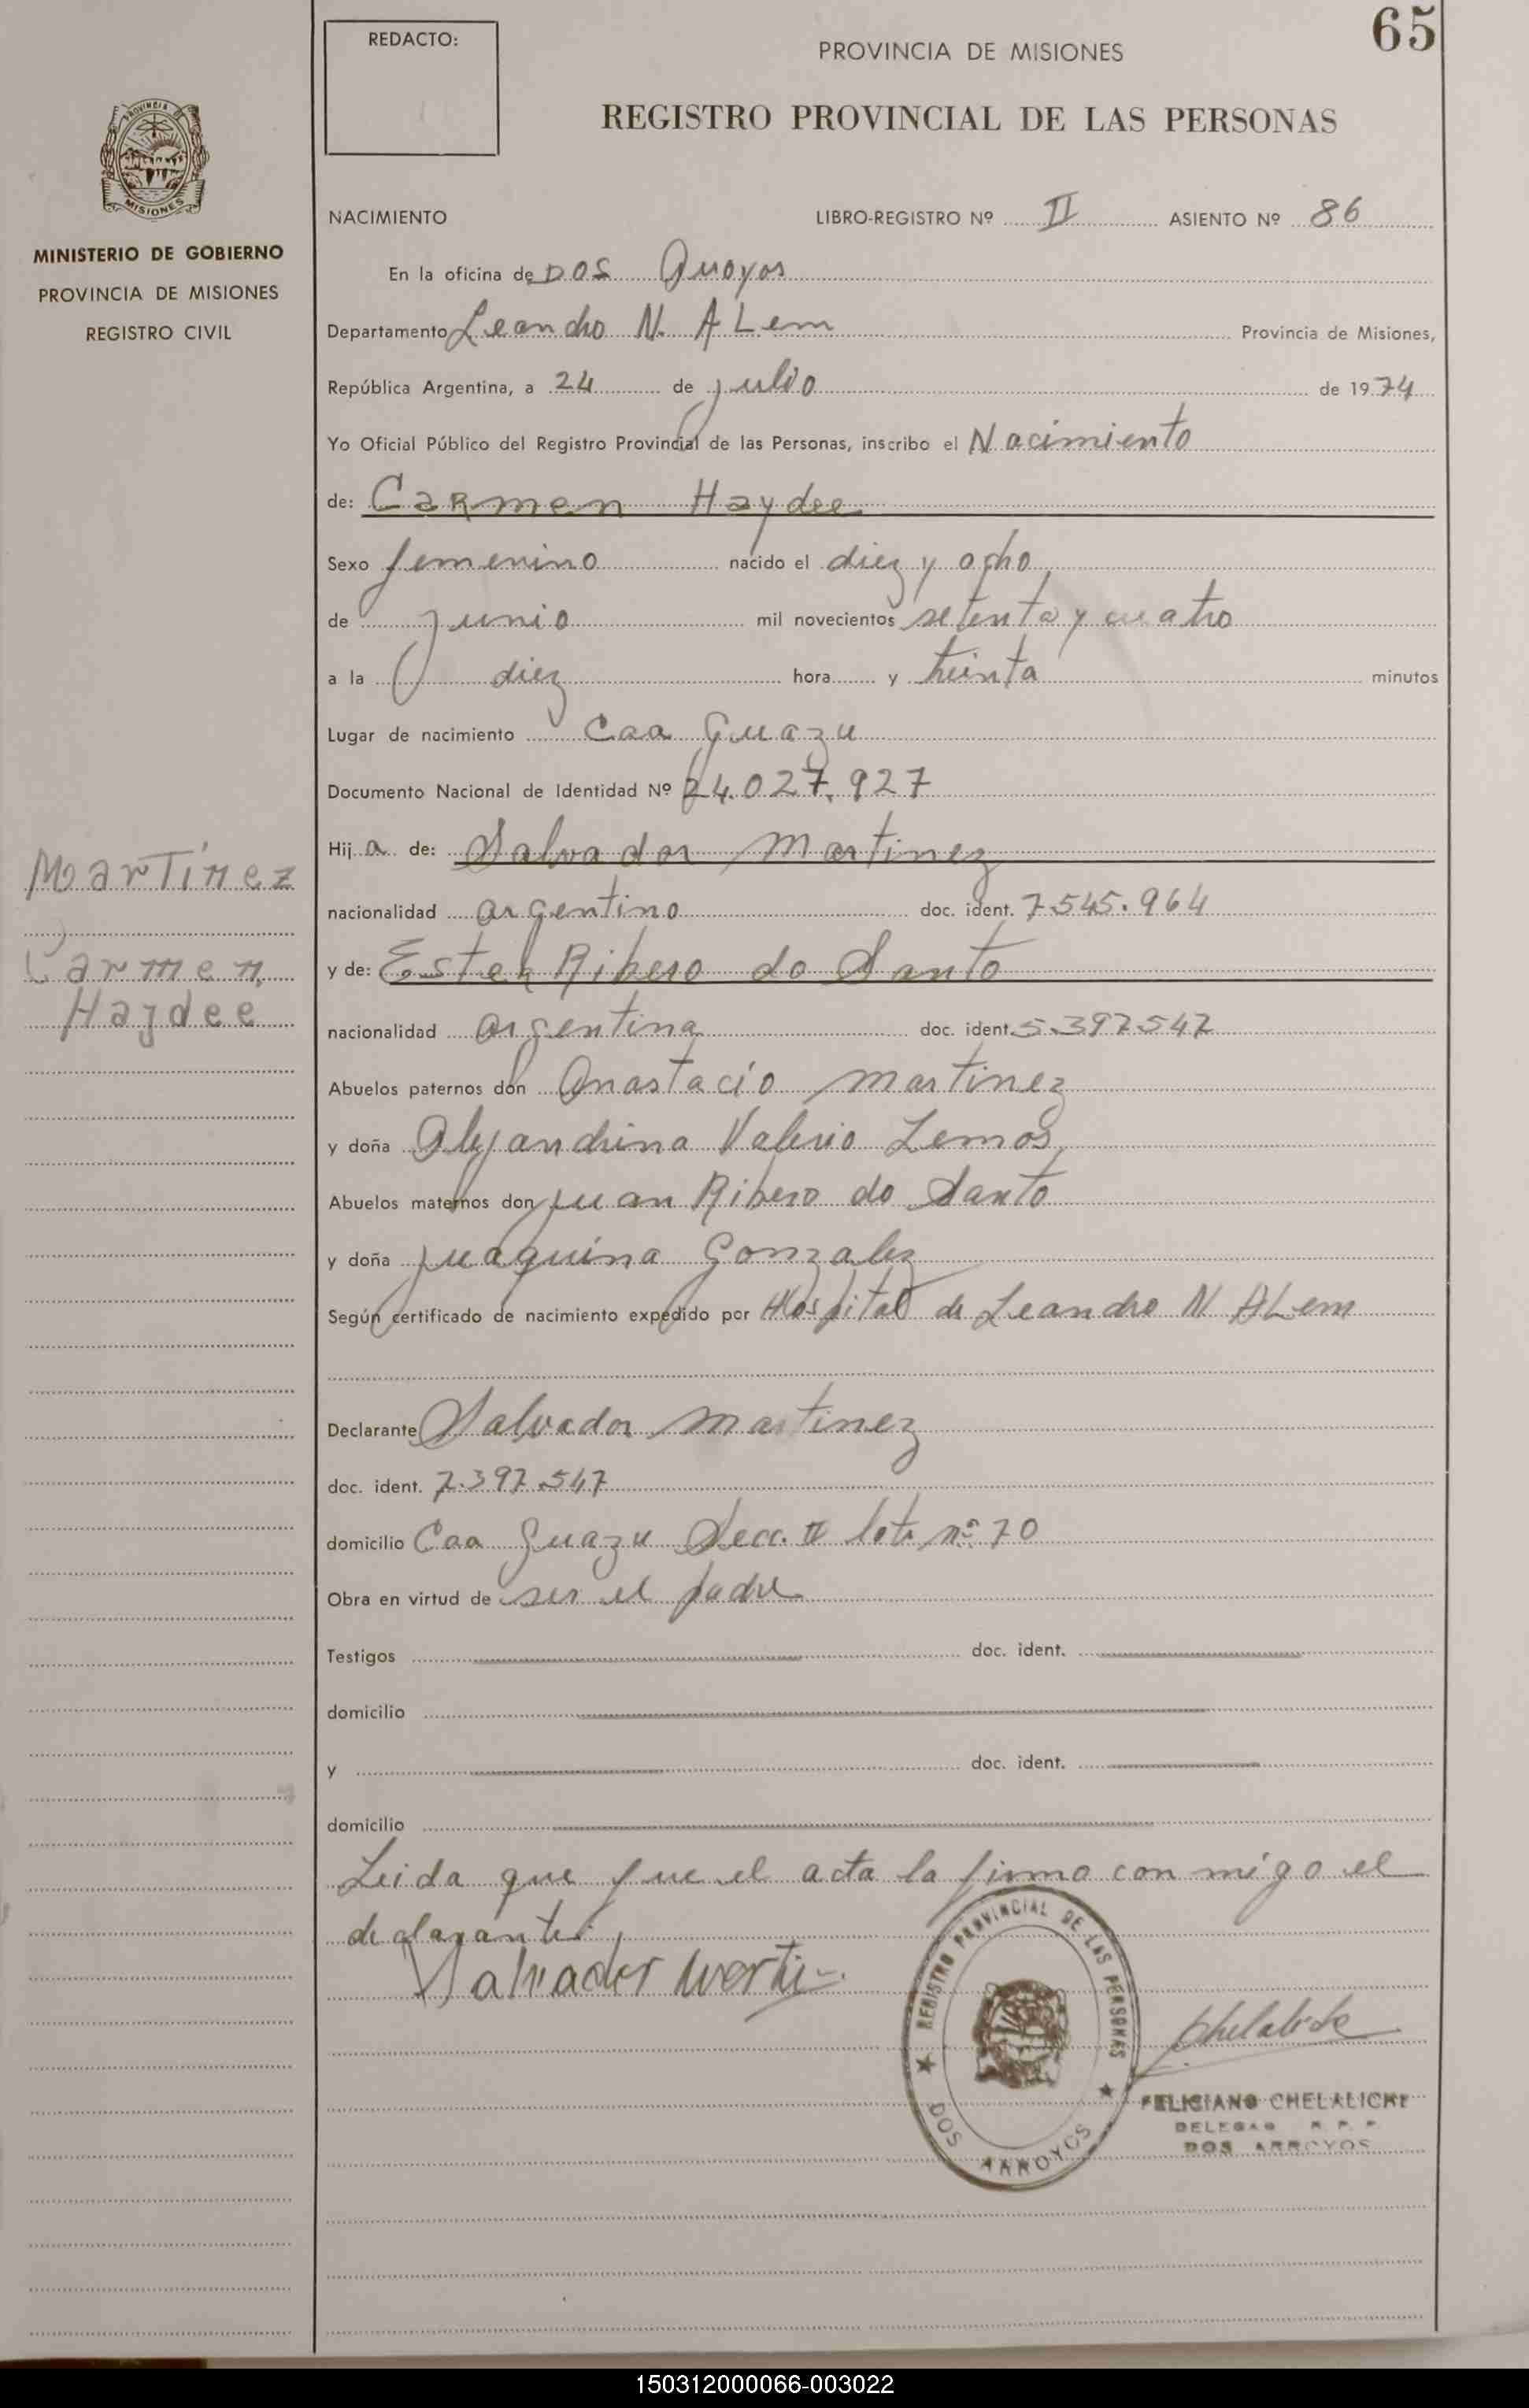 65
REDACTO:
PROVINCIA DE MISIONES
REGISTRO PROVINCIAL DE LAS PERSONAS
PROVINCIA D
MISIONES
MINISTERIO DE GOBIERNO
PROVINCIA DE MISIONES
REGISTRO CIVIL
NACIMIENTO LIBRO-REGISTRO Nº II ASIENTO Nº 86
En la oficina de DOS Arroyos
Departamento Leandro N. ALem Provincia de Misiones,
República Argentina, a 24 de julio de 1974
Yo Oficial Público del Registro Provincial de las Personas, inscribo el Nacimiento
de: Carmen Haydee
Sexo femenino nacido el diez y ocho
de junio mil novecientos setenta y cuatro
a la diez hora y treinta minutos
Lugar de nacimiento Caa Guazu
Documento Nacional de Identidad Nº 24.027.927
Hij a de: Salvador Martinez
nacionalidad argentino doc. ident. 7.545.964
y de: Ester Ribero do Santo
nacionalidad argentina doc. ident. 5.397.547
Abuelos paternos don Anastacio Martinez
y doña Alejandrina Valerio Lemos
Abuelos maternos don Juan Ribero do Santo
y doña Juaquina Gonzalez
Según certificado de nacimiento expedido por Hospital de Leandro N ALem
Declarante Salvador Martinez
doc. ident. 7.397.547
domicilio Caa Guazu Secc. II lote nº 70
Obra en virtud de ser el padre
Testigos doc. ident.
domicilio
y doc. ident.
domicilio
Leida que fue el acta la firma con migo el
declarante.
Salvador
Martínez
Carmen
Haydee
REGISTRO PROVINCIAL DE LAS PERSONAS
DOS ARROYOS
FELICIANO CHELALICHE
DELEGAD R. P. P.
DOS ARROYOS
150312000066-003022